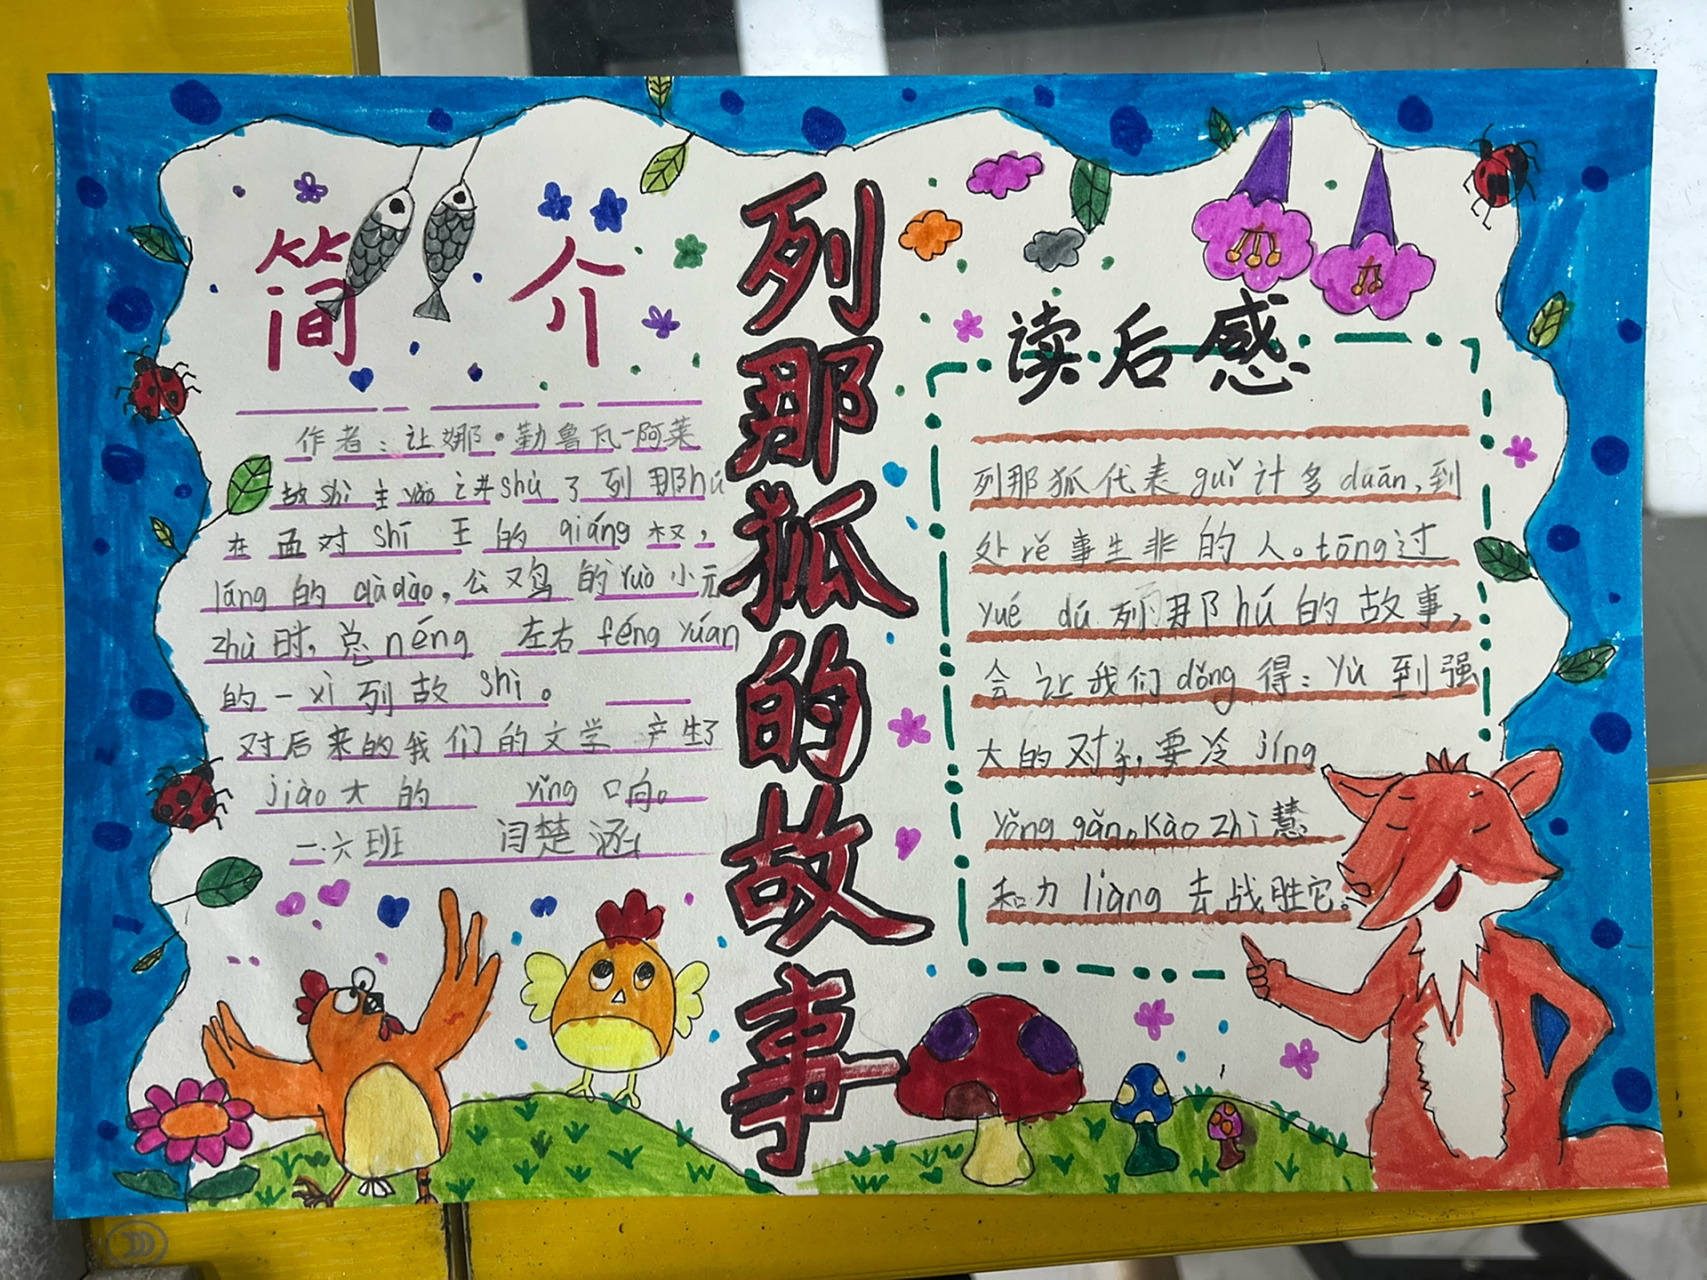 列那狐的故事
简介
作者：让娜·勒鲁瓦-阿莱
故shi主yào讲shú了列那hú
在面对shī王的qiáng权，
láng的qiàdào，公又鸟的ruò小无
zhù时，总néng左右féng yuán
的一xì列故shì。
对后来的我们的文学产生了
jiào大的yǐng口向。
二.六班 闫楚涵
读后感
列那狐代表guǐ计多duān，到
处rě事生非的人。tōng过
yué dú列那hú的故事，
会让我们dǒng得：yù到强
大的对手，要冷jíng
yǒng gǎn。kào zhì慧
和力liàng去战胜它。